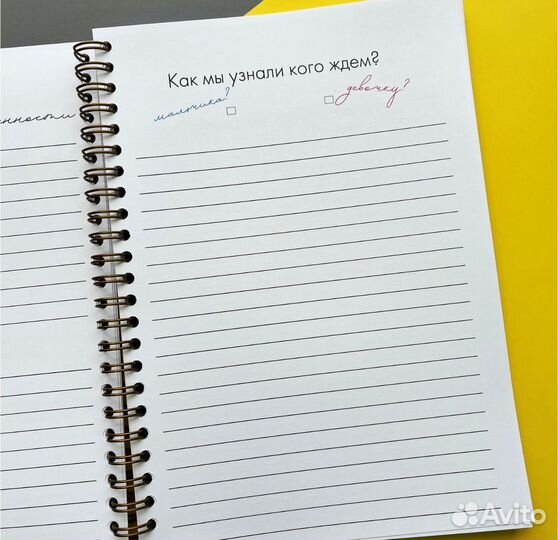 Как мы узнали кого ждем?
мальчика? девочку?
нности
Avito